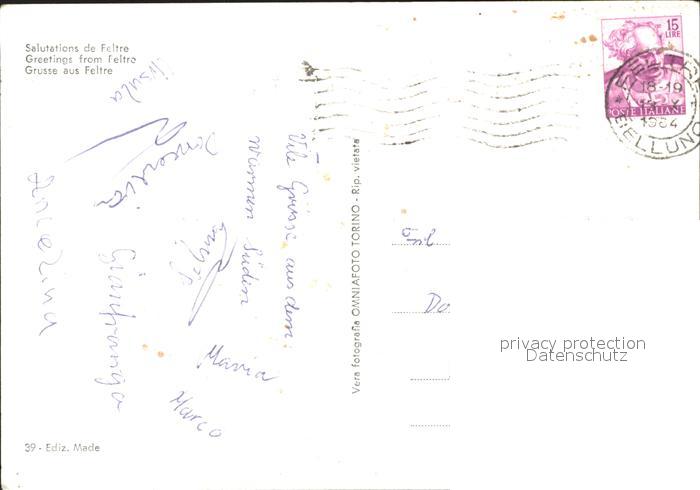 Salutations de Feltre
Greetings from Feltre
Grusse aus Feltre
Ursula
Vile Grüsse aus dem
warmen Süden
Lucrezia
Vincenzina
Gianfranca
Maria
Marco
39 - Ediz. Made
Vera fotografia OMNIAFOTO TORINO - Rip. vietata
15
LIRE
POSTE ITALIANE
18-19
1964
BELLUNO
Do
privacy protection
Datenschutz